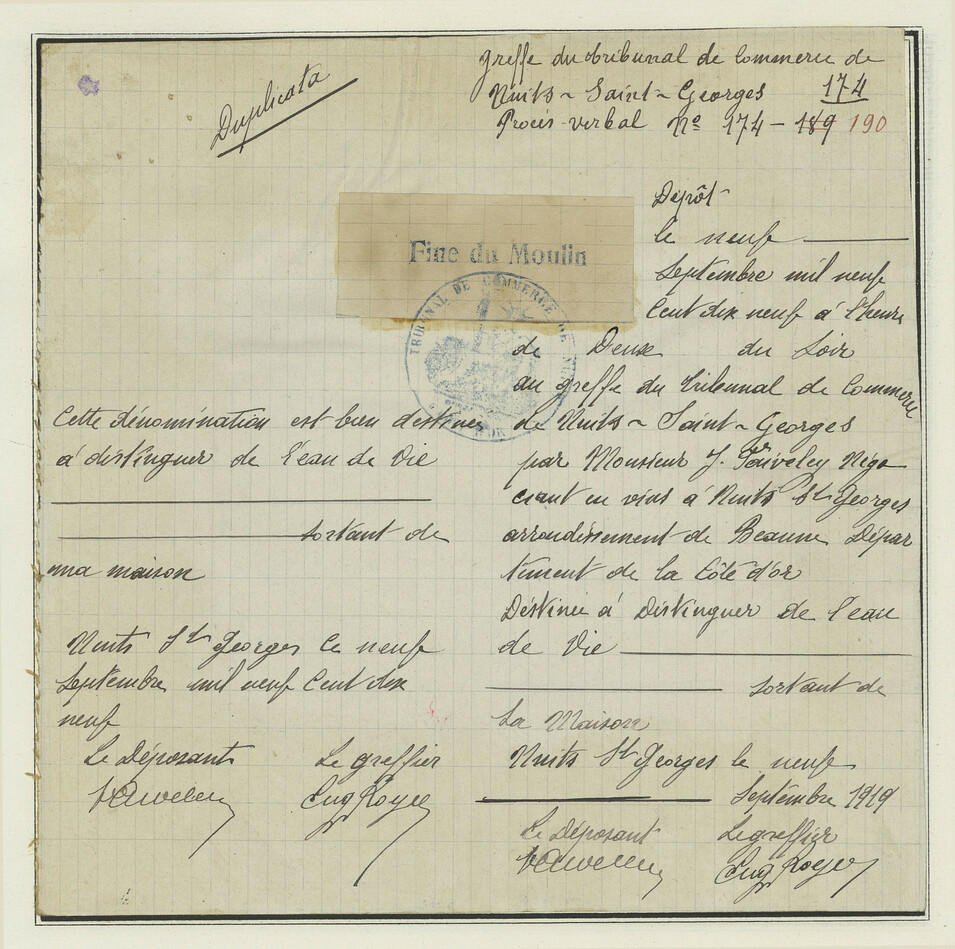 Duplicata
Greffe du tribunal de Commerce de
Nuits - Saint - Georges 174
Procès-verbal Nº 174 - 189 190
Fine du Moulin
TRIBUNAL DE COMMERCE DE
Cette dénomination est bien destinée
à distinguer de l'eau de Vie
sortant de
ma maison
Nuits St Georges le neuf
Septembre mil neuf Cent dix
neuf
Le Déposant Le greffier
Eug Royer
Dépôt
le neuf
Septembre mil neuf
Cent dix neuf à l'heure
de Deux du Soir
au greffe du Tribunal de Commerce
de Nuits - Saint - Georges
par Monsieur J. Négo
ciant en vins à Nuits St Georges
arrondissement de Beaune Dépar
tement de la Côte d'or
Destinée à Distinguer de l'eau
de Vie
sortant de
Sa Maison
Nuits St Georges le neuf
Septembre 1919
Le Déposant Le greffier
Eug Royer